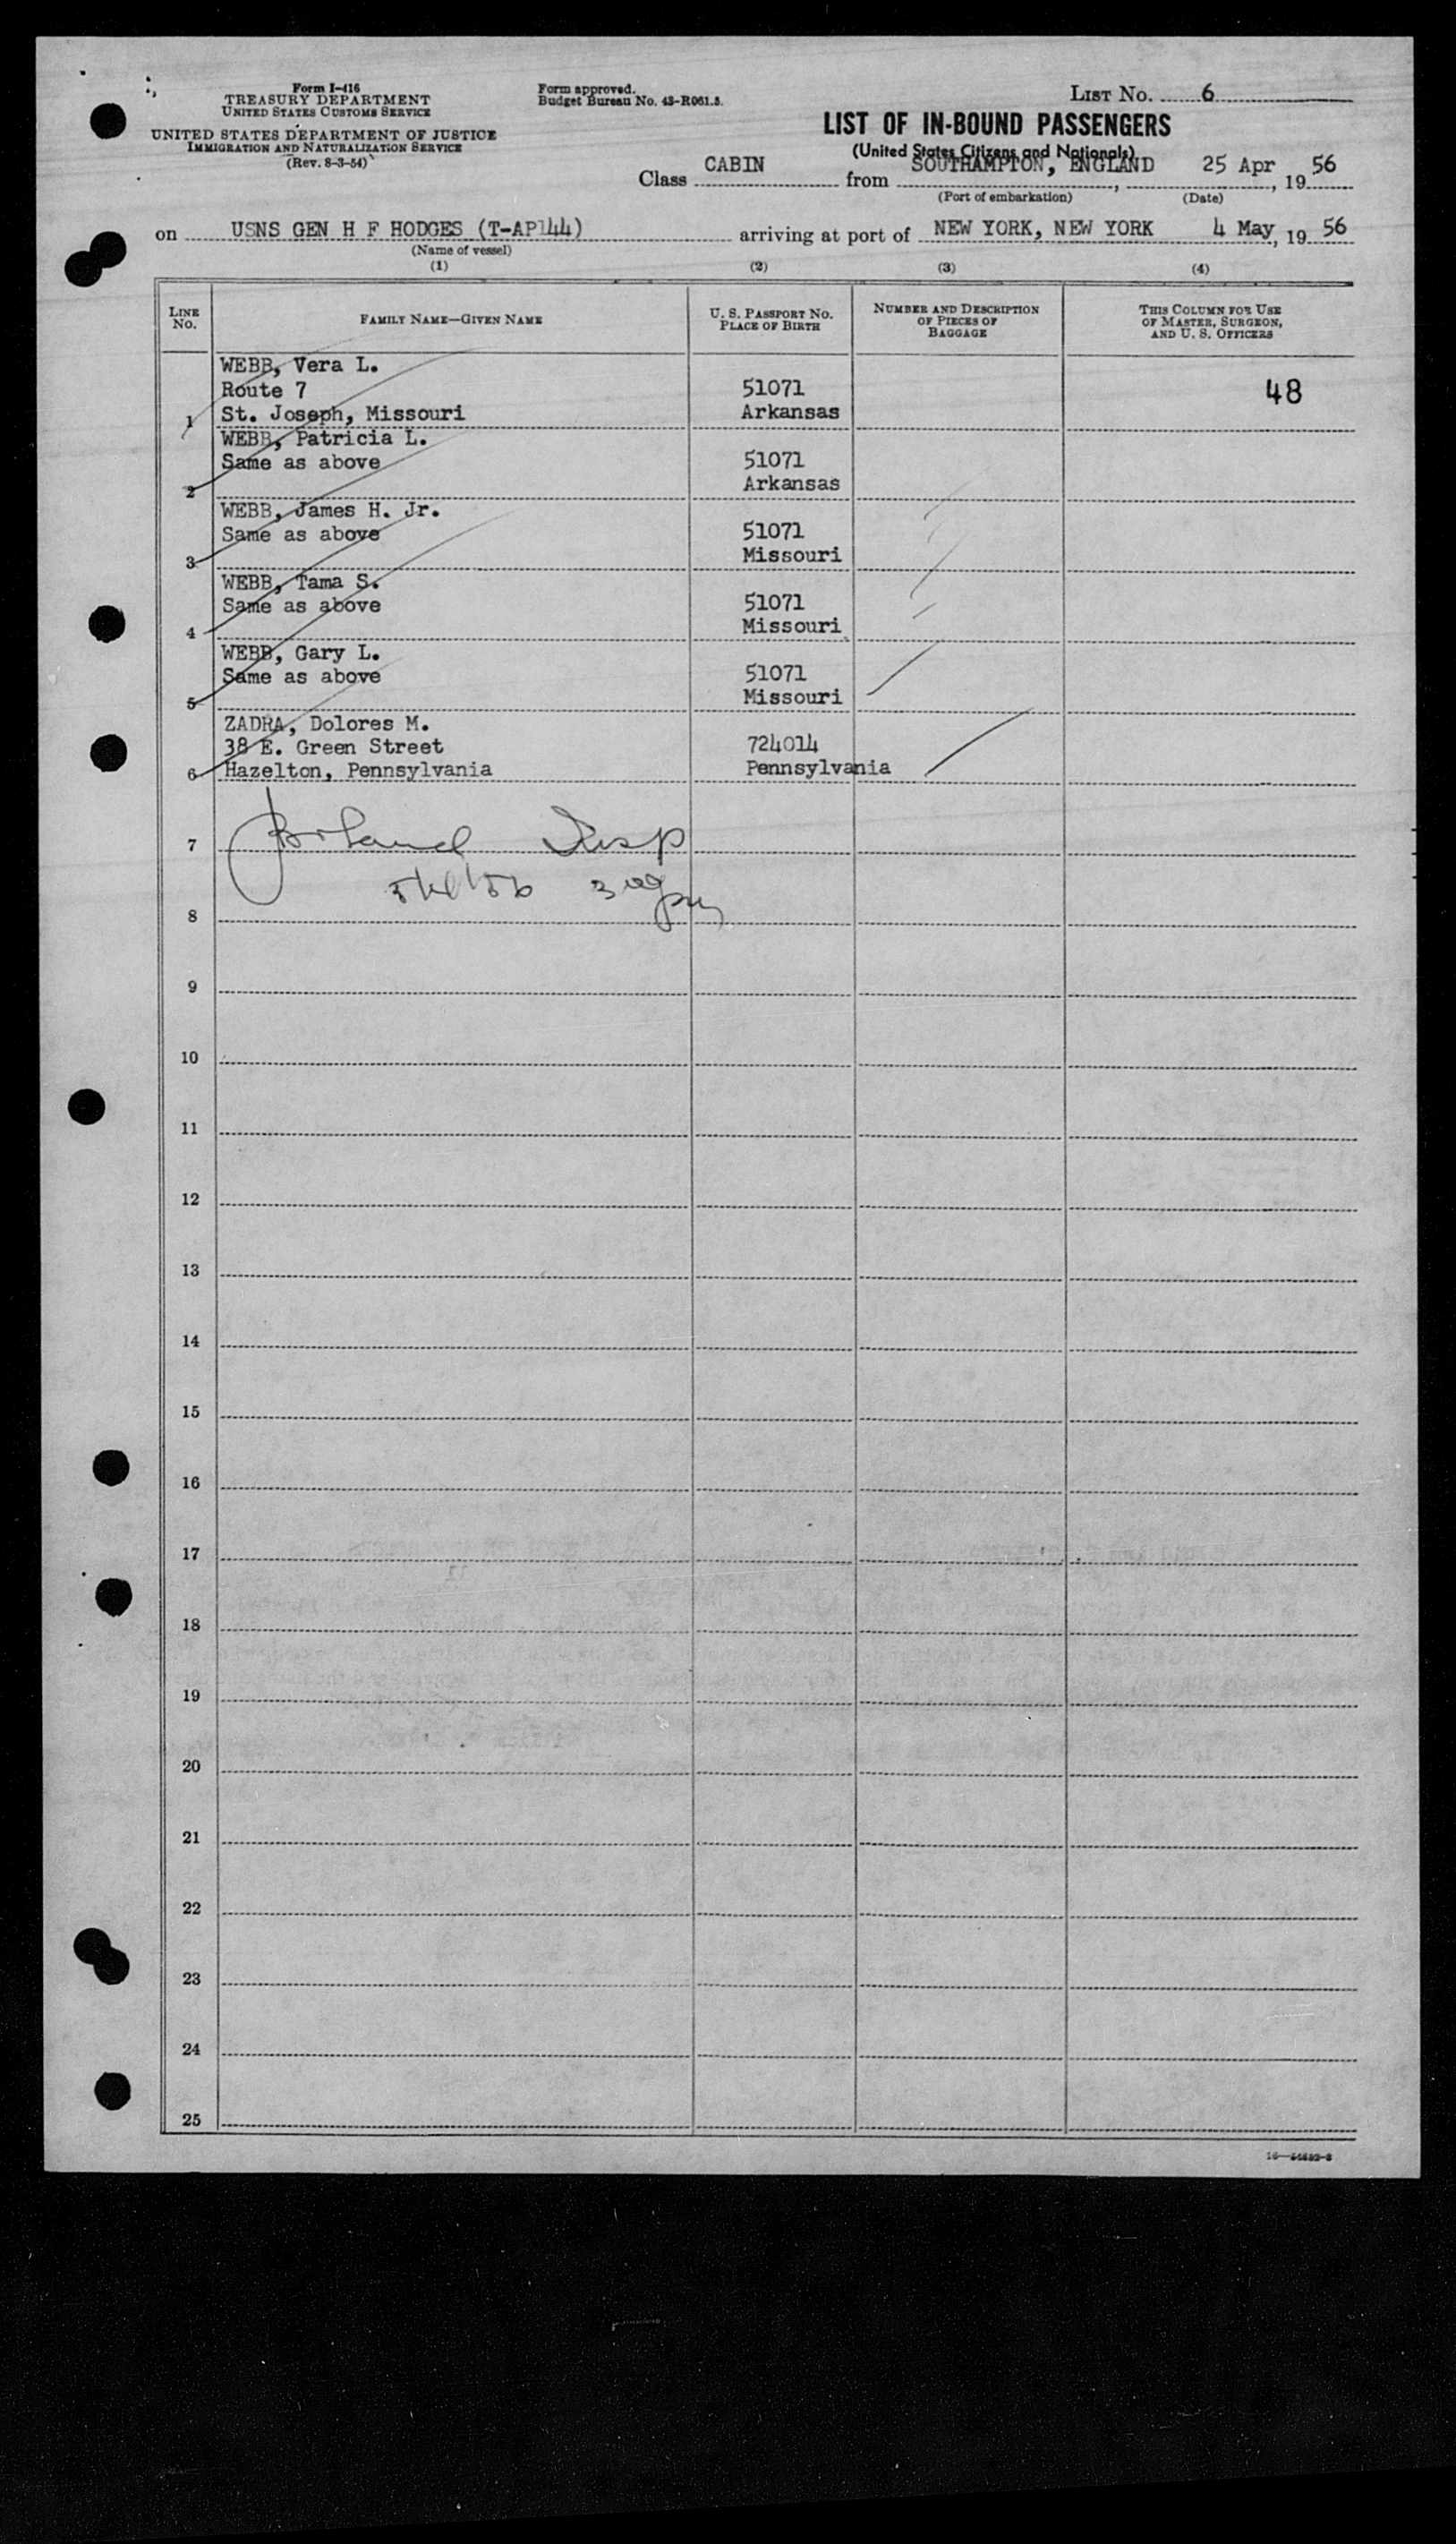 Form I-416
TREASURY DEPARTMENT
UNITED STATES CUSTOMS SERVICE
UNITED STATES DEPARTMENT OF JUSTICE
IMMIGRATION AND NATURALIZATION SERVICE
(Rev. 8-3-54)
Form approved.
Budget Bureau No. 43-R061.5.
LIST No. 6
LIST OF IN-BOUND PASSENGERS
(United States Citizens and Nationals)
Class CABIN from SOUTHAMPTON, ENGLAND, 25 Apr, 1956
(Port of embarkation) (Date)
on USNS GEN H F HODGES (T-AP144) arriving at port of NEW YORK, NEW YORK 4 May, 1956
(Name of vessel)
(1) (2) (3) (4)
LINE No.
FAMILY NAME—GIVEN NAME
U. S. PASSPORT NO. PLACE OF BIRTH
NUMBER AND DESCRIPTION OF PIECES OF BAGGAGE
THIS COLUMN FOR USE OF MASTER, SURGEON, AND U. S. OFFICERS
WEBB, Vera L.
Route 7 51071 48
1 St. Joseph, Missouri Arkansas
WEBB, Patricia L.
Same as above 51071
2 Arkansas
WEBB, James H. Jr.
Same as above 51071
3 Missouri
WEBB, Tama S.
Same as above 51071
4 Missouri
WEBB, Gary L.
Same as above 51071
5 Missouri
ZADRA, Dolores M.
38 E. Green Street 724014
6 Hazelton, Pennsylvania Pennsylvania
7
8
9
10
11
12
13
14
15
16
17
18
19
20
21
22
23
24
25